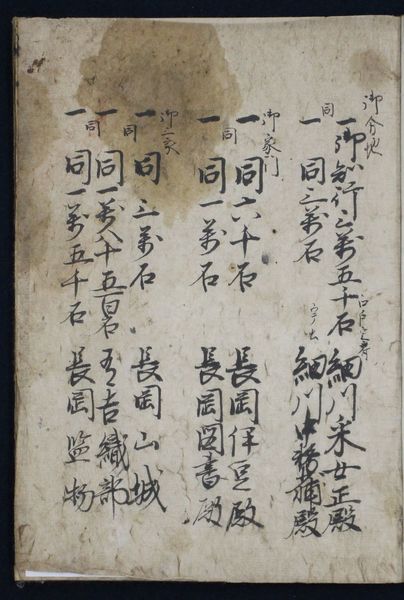 御分地
一御知行三萬五千石 細川采女正殿
同
一同三萬石 宇土 細川中務補殿
御家門
一同六千石 長岡伊豆殿
同
一同一萬石 長岡図書殿
御三家
一同三萬石 長岡山城
同
一同一萬八千五百石 有吉織部
同
一同一萬五千石 長岡監物